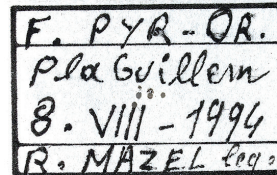 F. PYR-OR.
Pla Guillem
8. VIII - 1994
R. MAZEL leg.